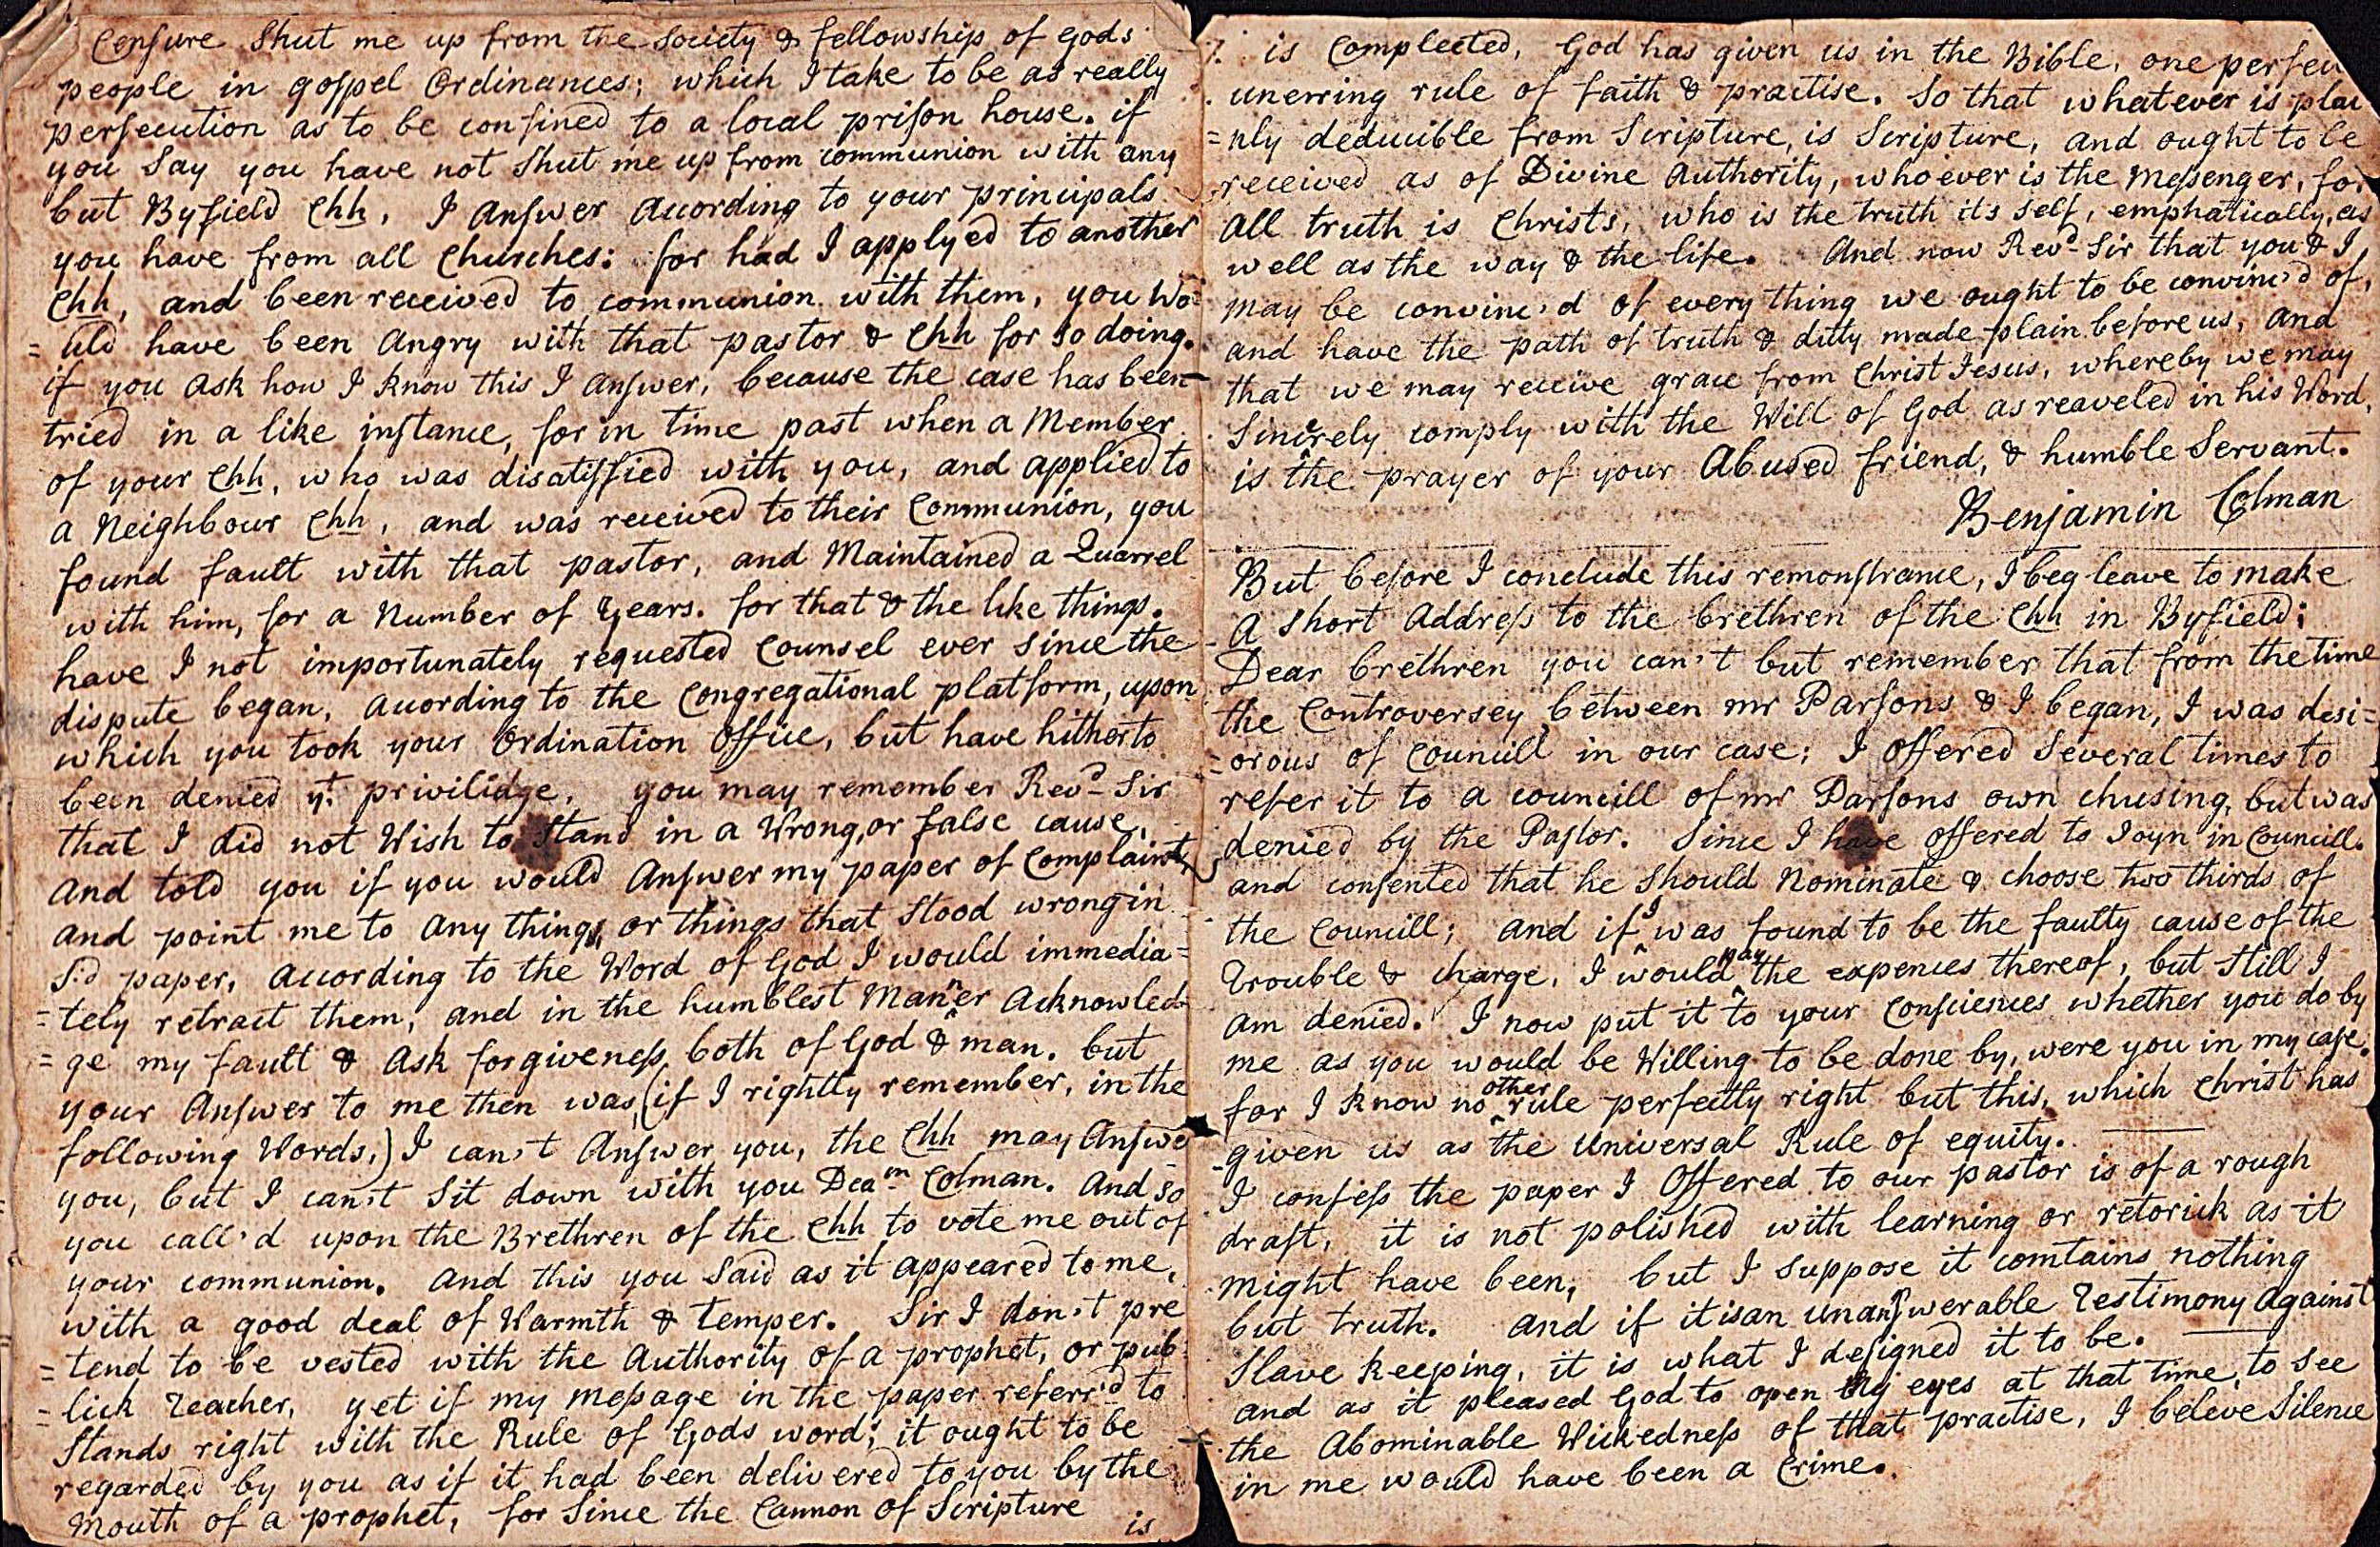 Censure Shut me up from the Society & fellowship of Gods
people in gospel Ordinances; which I take to be as really
persecution as to be confined to a local prison house. if
you Say you have not Shut me up from communion with any
but Byfield Chh, I Answer according to your principals
you have from all Churches: for had I applyed to another
Chh, and been received to communion with them, you wo
= uld have been Angry with that pastor & Chh for so doing.
if you ask how I know this I Answer, because the case has been
tried in a like instance, for in time past when a Member
of your Chh, who was disatissfied with you, and applied to
a Neighbour Chh, and was received to their Communion, you
found fault with that pastor, and Maintained a Quarrel
with him, for a Number of Years. for that & the like things.
have I not importunately requested Counsel ever since the
dispute began, according to the Congregational platform, upon
which you took your Ordination Office, but have hitherto
been denied yt. privilidge. you may remember Revd Sir
that I did not Wish to Stand in a Wrong, or false cause.
and told you if you would Answer my paper of Complaint,
and point me to any things, or things that Stood wrong in
Sd paper, according to the Word of God I would immedia=
=tely retract them, and in the humblest Manner Acknowled
= ge my fault & Ask forgiveness both of God & man. but
your Answer to me then was, (if I rightly remember, in the
following Words,) I can't Answer you, the Chh may Answe
you, but I can't Sit down with you Deacn Colman. And so
you call'd upon the Brethren of the Chh to vote me out of
your communion. And this you Said as it appeared to me,
with a good deal of Warmth & temper. Sir I don't pre
= tend to be vested with the Authority of a prophet, or pub
= lick Teacher, yet if my message in the paper referr'd to
Stands right with the Rule of Gods word; it ought to be
regarded by you as if it had been delivered to you by the
Mouth of a prophet, for Since the Cannon of Scripture
is
is Complected, God has given us in the Bible, one perfec
unerring rule of faith & practise. So that whatever is plai
=nly deducible from Scripture, is Scripture, and ought to be
received as of Divine Authority, whoever is the Messenger, for
all truth is Christs, who is the truth its self, emphatically, as
well as the way & the life. And now Revd Sir that you & I
may be convinc'd of every thing we ought to be convinc'd of,
and have the path of truth & dity made plain before us, and
that we may receive grace from Christ Jesus, whereby we may
Sincerely comply with the Will of God as reaveled in his Word,
is the prayer of your Abused friend, & humble Servant.
Benjamin Colman
But before I conclude this remonstrance, I beg leave to make
a short Address to the brethren of the Chh in Byfield;
Dear brethren you can't but remember that from the time
the Controversey between mr Parsons & I began, I was desi=
=orous of Councill in our case; I offered Several times to
refer it to a councill of mr Parsons own chusing, but was
denied by the Pastor. Since I have offered to Joyn in Councill.
and consented that he should Nominate & choose two thirds of
the Councill; and if I was found to be the faulty cause of the
Trouble & charge, I would pay the expences thereof, but still I
am denied. I now put it to your Consciences whether you do by
me as you would be Willing to be done by, were you in my case.
for I know no other rule perfectly right but this, which Christ has
given us as the Universal Rule of equity.
I confess the paper I Offered to our pastor is of a rough
draft, it is not polished with learning or retorick as it
might have been, but I suppose it comtains nothing
but truth. And if it is an unanswerable Testimony against
Slave keeping, it is what I designed it to be.
and as it pleased God to open my eyes at that time, to see
the Abominable Wickedness of that practise, I beleve Silence
in me would have been a Crime.